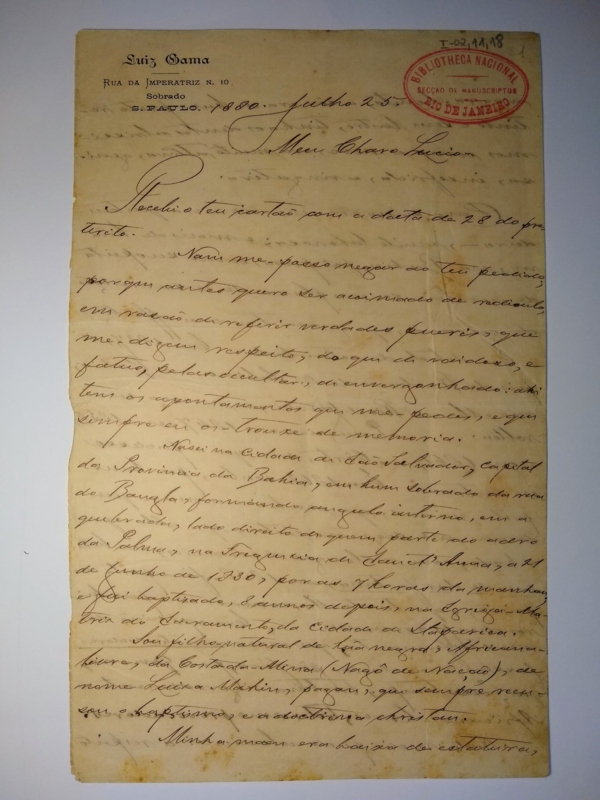 Luiz Gama
RUA DA IMPERATRIZ N. 10
Sobrado
S. PAULO. 1880. Julho 25.
I-02,11,18
1
BIBLIOTHECA NACIONAL
SECÇÃO DA MANUSCRIPTOS
RIO DE JANEIRO
Meu Charo Lucio,
Recebi o teu cartão com a data de 28 do pre-
terito.
Nam me-posso negar ao teu pedido,
porque antes quero ser acoimado de ridiculo,
em rasão de referir verdades pueris, que
me-dizem respeito, do que de vaidoso, e
fatuo, pelas occultar, de envergonhado: ahi
tens os apontamentos que me-pedes, e que
sempre eu os-trouxe de memoria.
Nasci na cidade de São Salvador, capital
da Provincia da Bahia, em hum sobrado da rua
do Bangla, formando angulo interno, em a
quebrada, lado direito de quem parte do adro
da Palma, na Freguezia de Sanct'Anna, a 21
de Junho de 1830, por as 7 horas da manhan,
e fui baptizado, 8 annos depois, na Igreja-Ma-
triz do Sacramento, da cidade de Itaparica.
Sou filho natural de hũa negra, Africana-
livre, da Costa da-Mina, (Nagô de Nação), de
nome Luiza Mahin, pagan, que sempre recu-
sou o baptismo, e a doctrina christan.
Minha mãe era baixa de estatura,